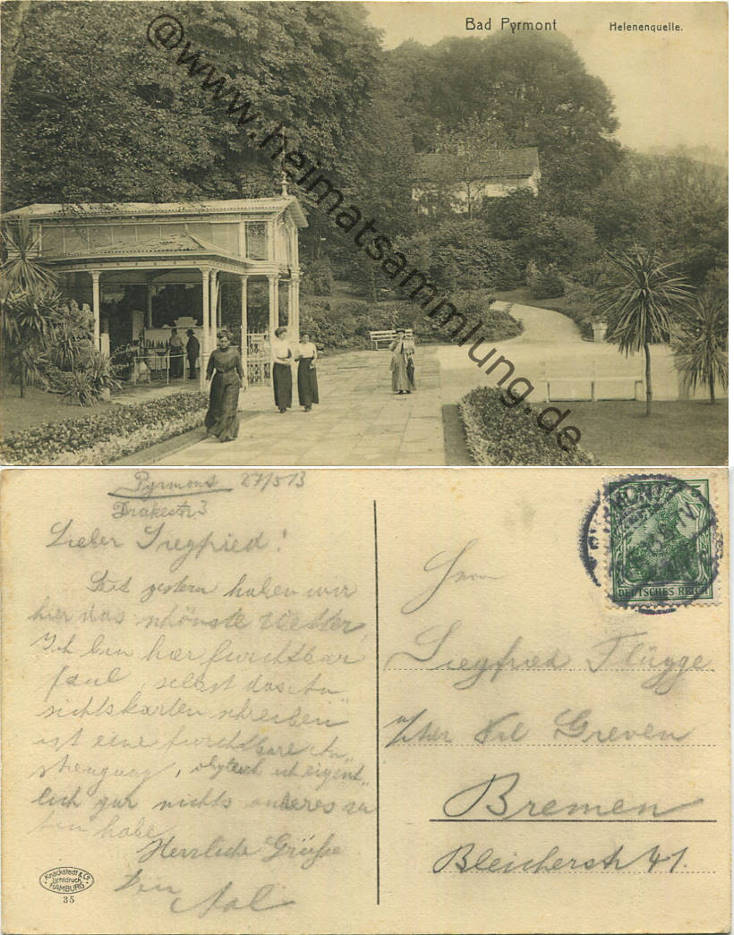 Bad Pyrmont Helenenquelle.
@www.heimatsammlung.de
Pyrmont 27/5 13
Drakestr 3
Lieber Siegfried!
Seit gestern haben wir
hier das schönste Wetter,
Ich bin hier furchtbar
faul, selbst das An-
sichtskarten schreiben
ist eine furchtbare An-
strengung, obgleich ich eigent-
lich gar nichts anderes zu
tun habe.
Herzliche Grüße
Dein
Knackstedt & Co.
Lichtdruck
HAMBURG
35
DEUTSCHES REICH
Herrn
Siegfried Flügge
Greven
Bremen
Bleicherstr 41.